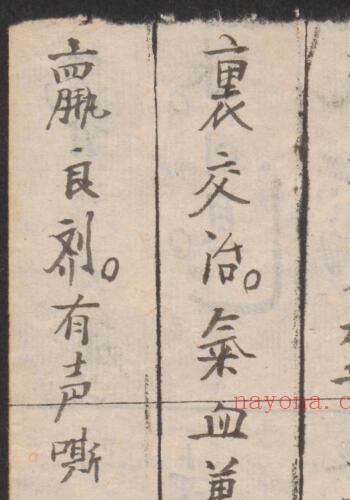 裏交治。氣血兼
羸良剂。有声嘶
nayona.c